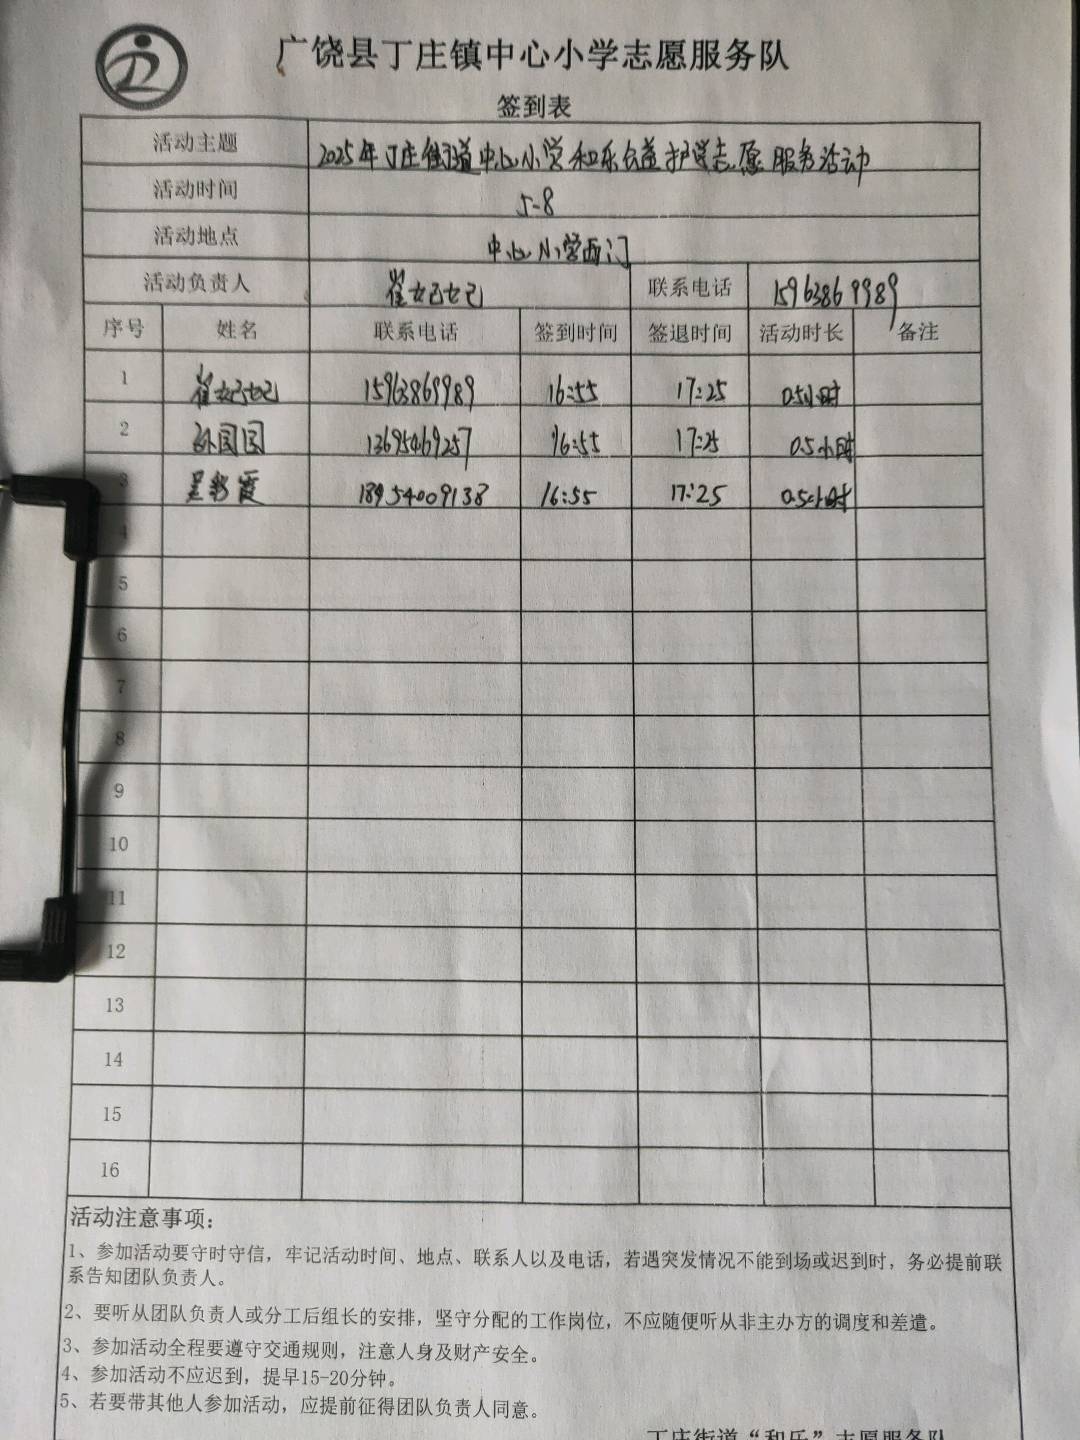 广饶县丁庄镇中心小学志愿服务队
签到表
活动主题 2025年丁庄街道中心小学和乐公益护学志愿服务活动
活动时间 5-8
活动地点 中心小学西门
活动负责人 崔妃妃 联系电话 15963869989
序号 姓名 联系电话 签到时间 签退时间 活动时长 备注
1 崔妃妃 15963869989 16:55 17:25 0.5小时
2 孙园园 13695469257 16:55 17:25 0.5小时
3 吴彩霞 18954009138 16:55 17:25 0.5小时
4
5
6
7
8
9
10
11
12
13
14
15
16
活动注意事项：
1、参加活动要守时守信，牢记活动时间、地点、联系人以及电话，若遇突发情况不能到场或迟到时，务必提前联
系告知团队负责人。
2、要听从团队负责人或分工后组长的安排，坚守分配的工作岗位，不应随便听从非主办方的调度和差遣。
3、参加活动全程要遵守交通规则，注意人身及财产安全。
4、参加活动不应迟到，提早15-20分钟。
5、若要带其他人参加活动，应提前征得团队负责人同意。
丁庄街道“和乐”志愿服务队